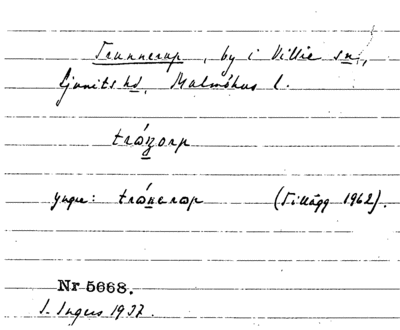 Trunnerup, by i Villie sn,
Ljunits hd, Malmöhus l.
trónorp
yngre: trónerop (Tillägg 1962).
Nr 5668.
I. Ingers 1937.